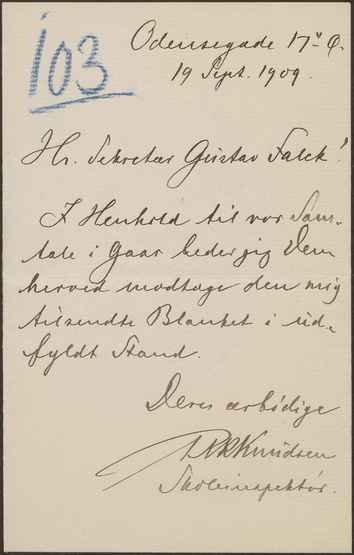 103
Odensegade 17² Ø.
19 Sept. 1909.
Hr. Sekretær Gustav Falck!
I Henhold til vor Sam-
tale i Gaar beder jeg Dem
herved modtage den mig
tilsendte Blanket i ud-
fyldt Stand.
Deres ærbødige
Knudsen
Skoleinspektør.